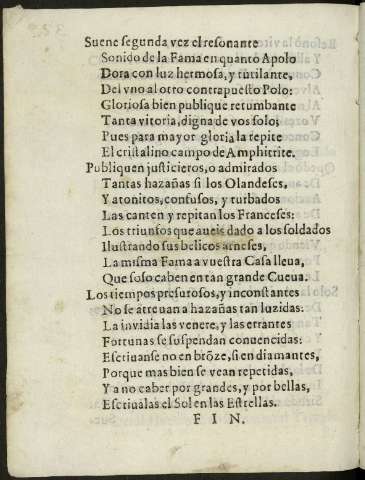 Suene segunda vez el resonante
Sonido de la Fama en quanto Apolo
Dora con luz hermosa, y rutilante,
Del vno al otro contrapuesto Polo:
Gloriosa bien publique retumbante
Tanta vitoria, digna de vos solo;
Pues para mayor gloria la repite
El cristalino campo de Amphitrite.
Publiquen justicieros, o admirados
Tantas hazañas si los Olandeses,
Y atonitos, confusos, y turbados
Las canten y repitan los Franceses:
Los triunfos que aueis dado a los soldados
Ilustrando sus belicos arneses,
La misma Fama a vuestra Casa lleua,
Que solo caben en tan grande Cueua.
Los tiempos presurosos, y inconstantes
No se atreuan a hazañas tan luzidas:
La invidia las venere, y las errantes
Fortunas se suspendan conuencidas:
Escriuanse no en brōze, si en diamantes,
Porque mas bien se vean repetidas,
Y a no caber por grandes, y por bellas,
Escriualas el Sol en las Estrellas.
F I N.